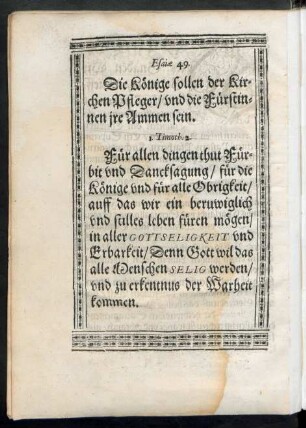 Esaiæ 49.
Die Könige sollen der Kir-
chen Pfleger/ vnd die Fürstin-
nen jre Ammen sein.
1. Timoth. 2.
Für allen dingen thut Für-
bit vnd Dancksagung/ für die
Könige vnd für alle Obrigkeit/
auff das wir ein beruwiglich
vnd stilles leben füren mögen/
in aller GOTTSELIGKEIT vnd
Erbarkeit/ Denn Gott wil das
alle Menschen SELIG werden/
vnd zu erkentnus der Warheit
kommen.